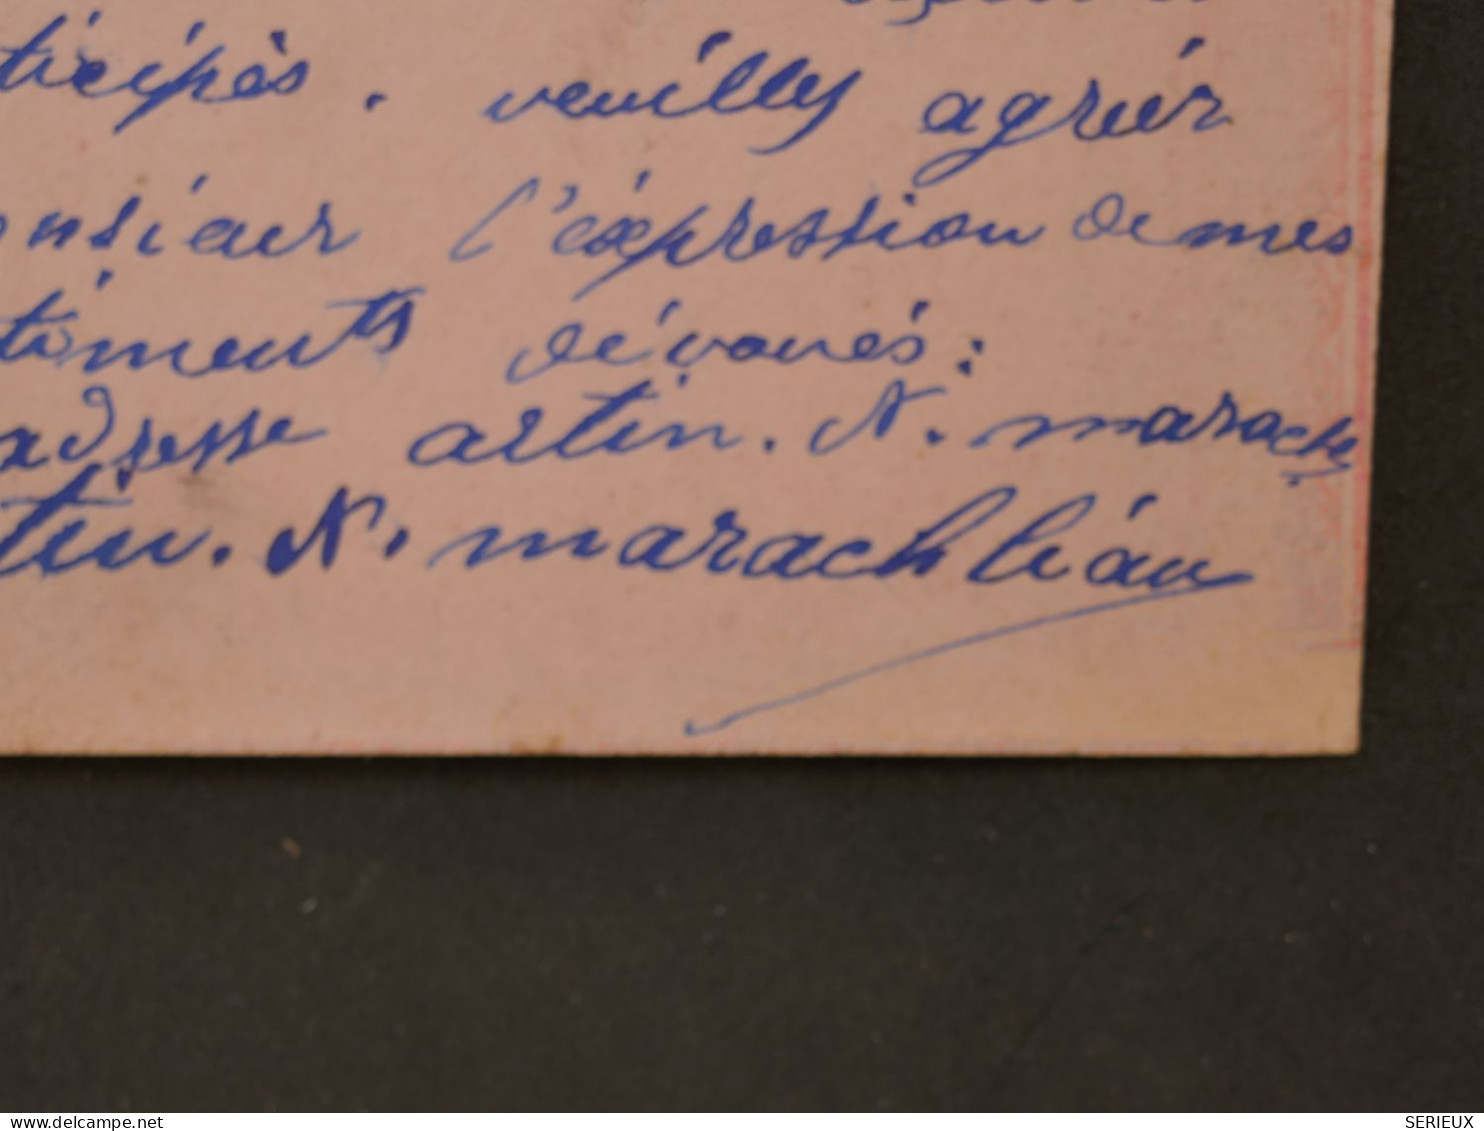 ticipés. veuilly agréér
onsieur l'éxpression de mes
timents dévoués:
adresse artin. N. marach
tin. N. marachlián
delcampe.net
SERIEUX